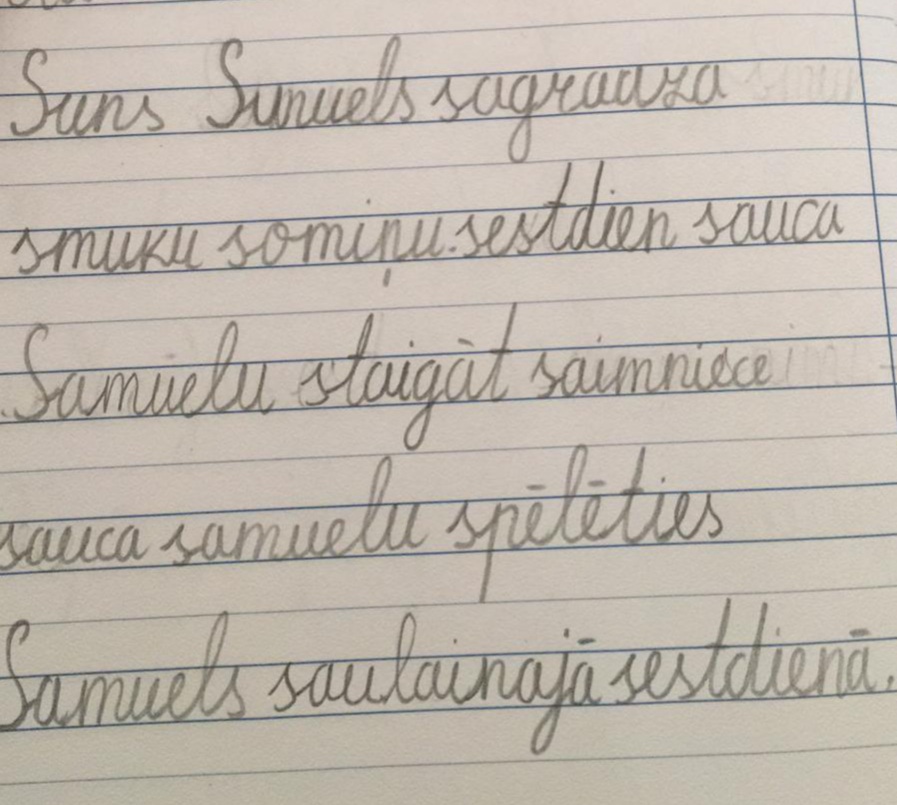 Suns Sumuels sagrauza
smuku somiņu. sestdien sauca
Samuelu staigāt saimniece
sauca samuelu spēlēties
Samuels saulainajā sestdienā.